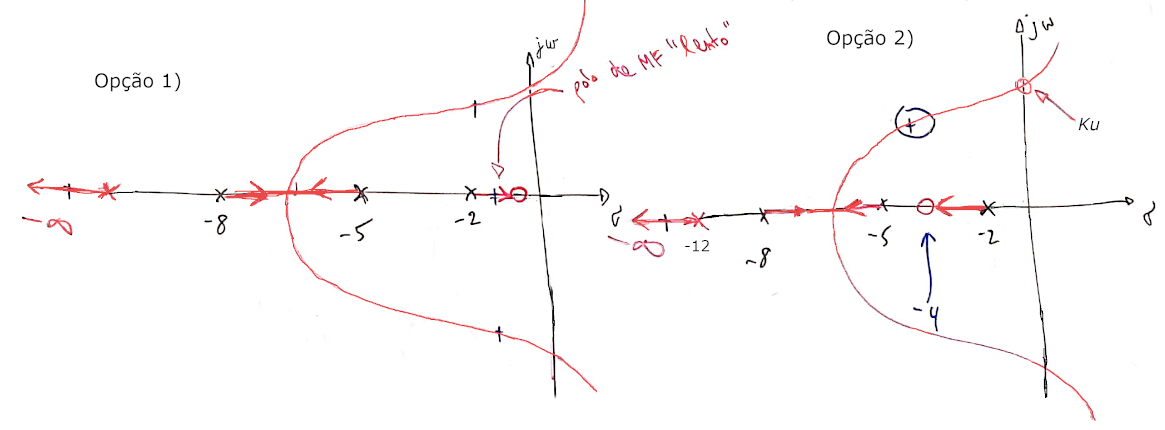 Opção 1)
jω
pólo de MF "lento"
-8
-5
-2
σ
-∞
Opção 2)
jω
Ku
-∞
-12
-8
-5
-4
-2
σ